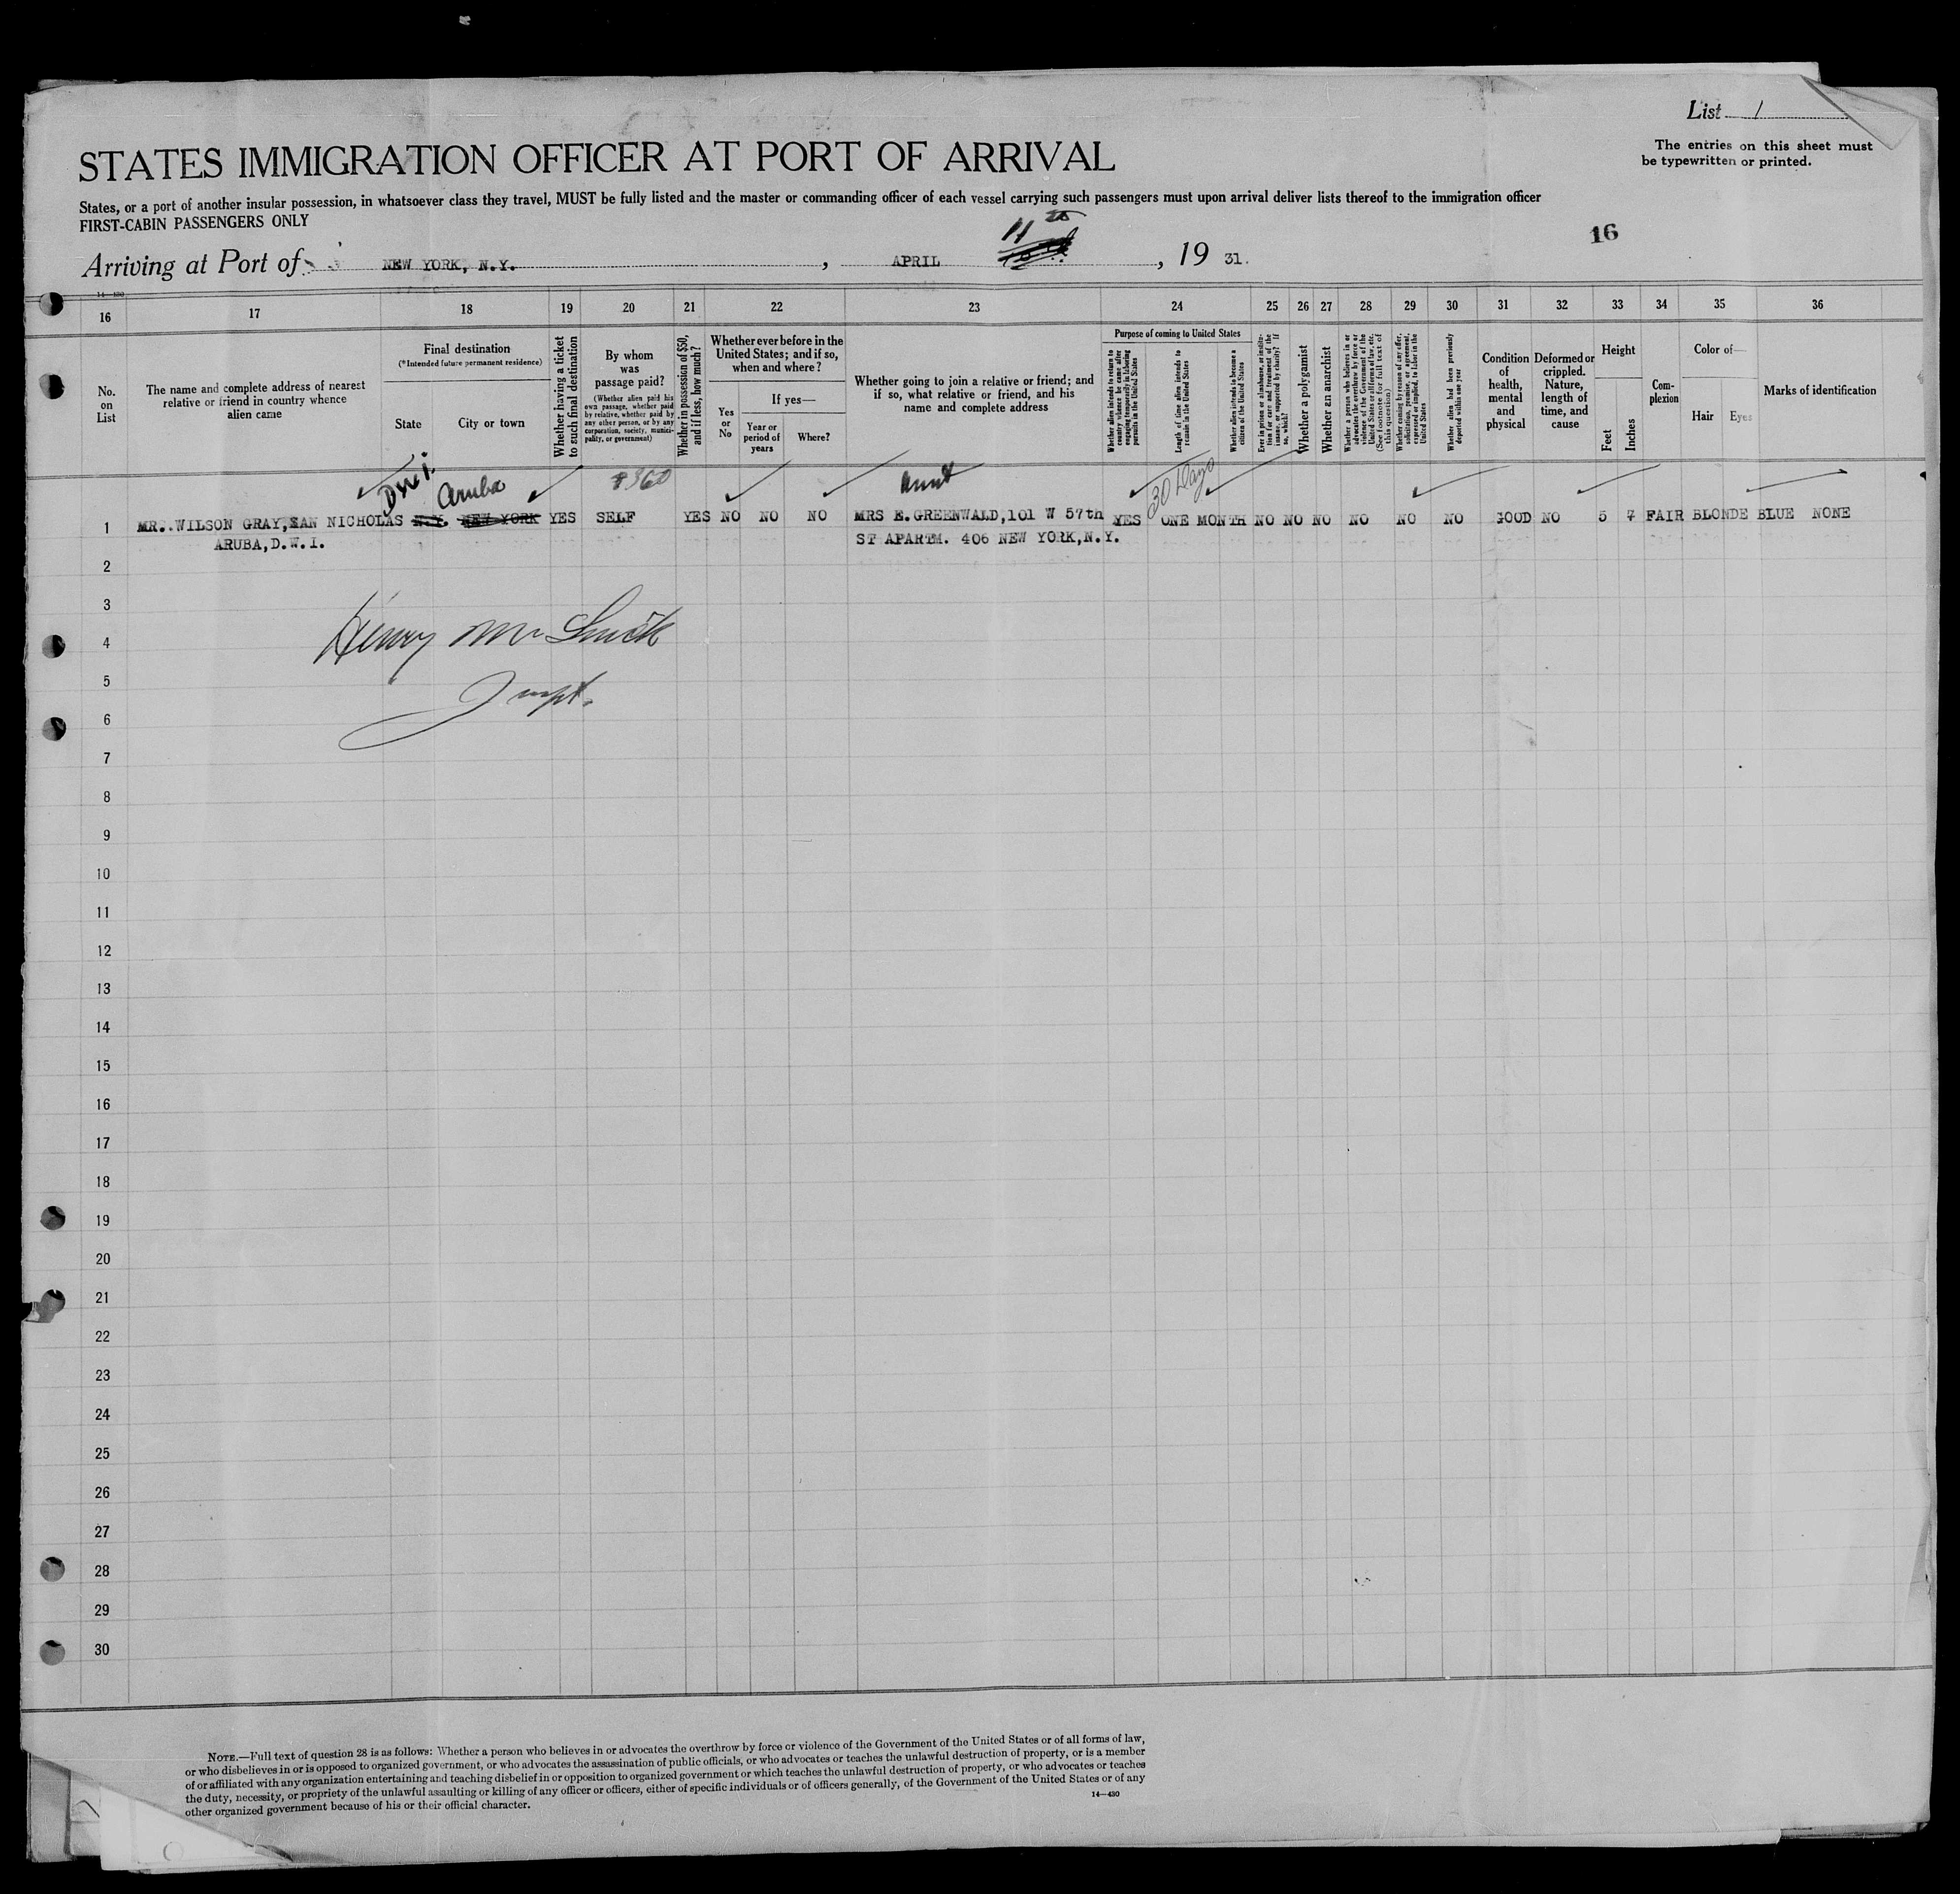 List 1
The entries on this sheet must
be typewritten or printed.
STATES IMMIGRATION OFFICER AT PORT OF ARRIVAL
States, or a port of another insular possession, in whatsoever class they travel, MUST be fully listed and the master or commanding officer of each vessel carrying such passengers must upon arrival deliver lists thereof to the immigration officer
FIRST-CABIN PASSENGERS ONLY
16
11th
Arriving at Port of NEW YORK, N.Y. , APRIL , 19 31.
14—430
16 17 18 19 20 21 22 23 24 25 26 27 28 29 30 31 32 33 34 35 36
No.
on
List
The name and complete address of nearest
relative or friend in country whence
alien came
Final destination
(*Intended future permanent residence)
State
City or town
Whether having a ticket
to such final destination
By whom
was
passage paid?
(Whether alien paid his
own passage, whether paid
by relative, whether paid by
any other person, or by any
corporation, society, munici-
pality, or government)
Whether in possession of $50,
and if less, how much?
Whether ever before in the
United States; and if so,
when and where?
Yes
or
No
If yes—
Year or
period of
years
Where?
Whether going to join a relative or friend; and
if so, what relative or friend, and his
name and complete address
Purpose of coming to United States
Whether alien intends to return to
country whence he came after
engaging temporarily in laboring
pursuits in the United States
Length of time alien intends to
remain in the United States
Whether alien intends to become a
citizen of the United States
Ever in prison or almshouse, or institu-
tion for care and treatment of the
insane, or supported by charity? If
so, which?
Whether a polygamist
Whether an anarchist
Whether a person who believes in or
advocates the overthrow by force or
violence of the Government of the
United States or all forms of law, etc.
(See footnote for full text of
this question)
Whether coming by reason of any offer,
solicitation, promise, or agreement,
expressed or implied, to labor in the
United States
Whether alien had been previously
deported within one year
Condition
of
health,
mental
and
physical
Deformed or
crippled.
Nature,
length of
time, and
cause
Height
Feet
Inches
Com-
plexion
Color of—
Hair
Eyes
Marks of identification
D.W.I. Aruba $360 Aunt 30 Days
1 MR. WILSON GRAY, SAN NICHOLAS N.Y. NEW YORK YES SELF YES NO NO NO MRS E. GREENWALD, 101 W 57th YES ONE MONTH NO NO NO NO NO NO GOOD NO 5 7 FAIR BLONDE BLUE NONE
ARUBA, D.W.I. ST APARTM. 406 NEW YORK, N.Y.
2
3
4
Henry
5
6
7
8
9
10
11
12
13
14
15
16
17
18
19
20
21
22
23
24
25
26
27
28
29
30
NOTE.—Full text of question 28 is as follows: Whether a person who believes in or advocates the overthrow by force or violence of the Government of the United States or of all forms of law,
or who disbelieves in or is opposed to organized government, or who advocates the assassination of public officials, or who advocates or teaches the unlawful destruction of property, or is a member
of or affiliated with any organization entertaining and teaching disbelief in or opposition to organized government or which teaches the unlawful destruction of property, or who advocates or teaches
the duty, necessity, or propriety of the unlawful assaulting or killing of any officer or officers, either of specific individuals or of officers generally, of the Government of the United States or of any
other organized government because of his or their official character.
14—430